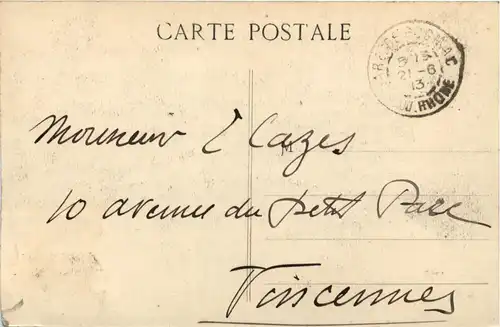 CARTE POSTALE
3*15
21-6
13
DU RHONE
Monsieur L Cazes
M
10 avenue du petit Parc
Vincennes